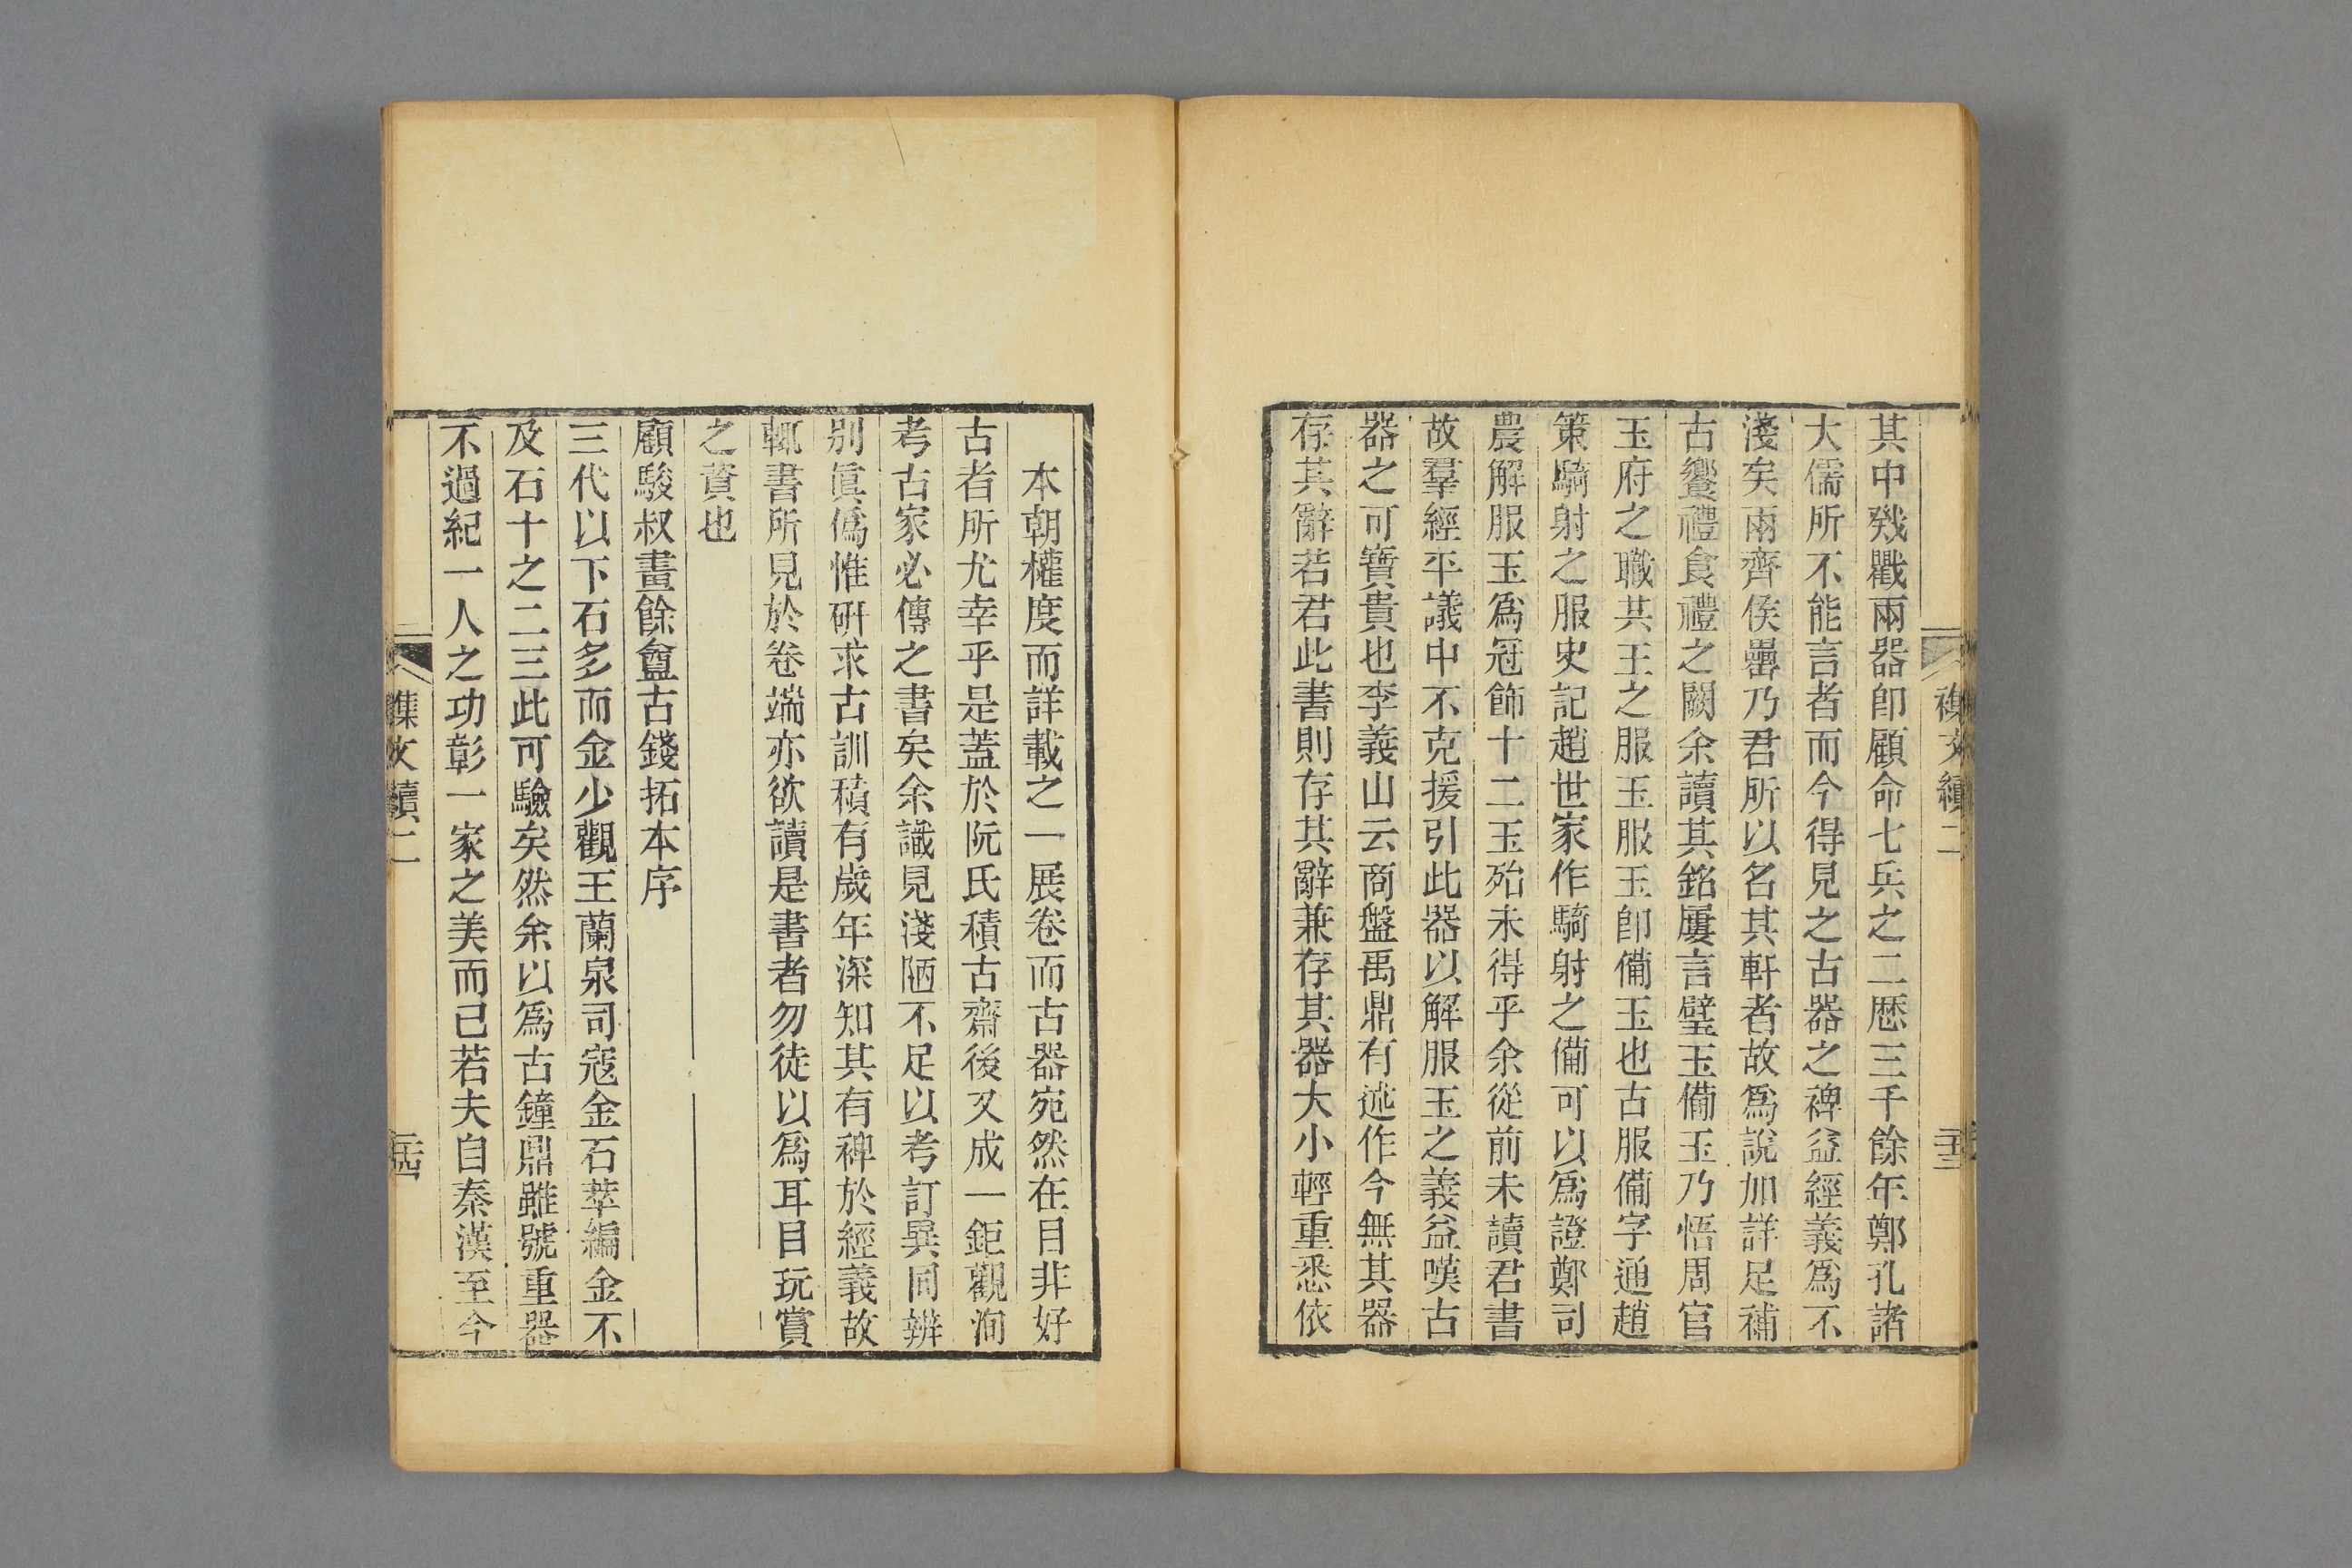 襍文續二
二十三
其中戣戵兩器卽顧命七兵之二歷三千餘年鄭孔諸
大儒所不能言者而今得見之古器之裨益經義爲不
淺矣兩齊侯罍乃君所以名其軒者故爲說加詳足補
古饗禮食禮之闕余讀其銘屢言璧玉備玉乃悟周官
玉府之職共王之服玉服玉卽備玉也古服備字通趙
策騎射之服史記趙世家作騎射之備可以爲證鄭司
農解服玉爲冠飾十二玉殆未得乎余從前未讀君書
故羣經平議中不克援引此器以解服玉之義益嘆古
器之可寶貴也李義山云商盤禹鼎有述作今無其器
存其辭若君此書則存其辭兼存其器大小輕重悉依
本朝權度而詳載之一展卷而古器宛然在目非好
古者所尤幸乎是蓋於阮氏積古齋後又成一鉅觀洵
考古家必傳之書矣余識見淺陋不足以考訂異同辨
別眞僞惟研求古訓積有歲年深知其有裨於經義故
輒書所見於卷端亦欲讀是書者勿徒以爲耳目玩賞
之資也
顧駿叔畫餘盦古錢拓本序
三代以下石多而金少觀王蘭泉司寇金石萃編金不
及石十之二三此可驗矣然余以爲古鐘鼎雖號重器
不過紀一人之功彰一家之美而已若夫自秦漢至今
襍文續二
二十四